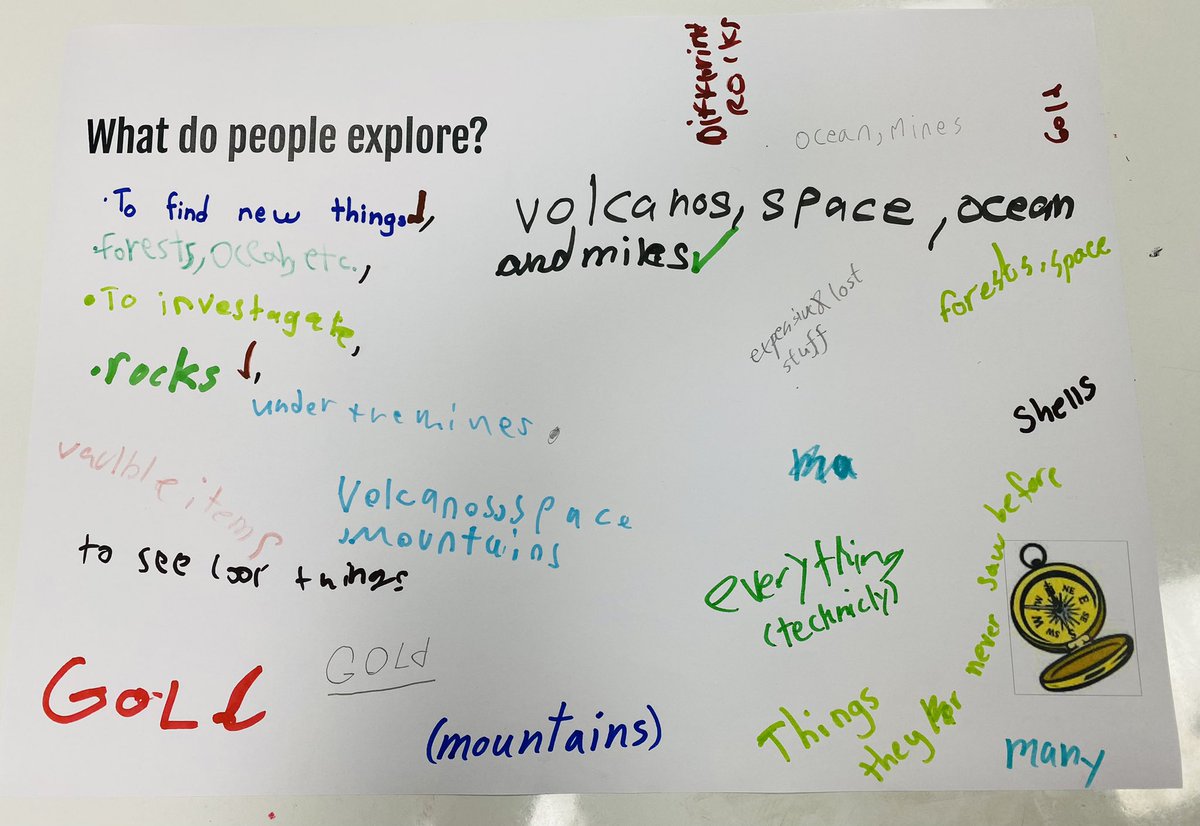 What do people explore?
Diffrint
ROCKS
ocean, mines
Gold
•To find new things,
•forests, ocean, etc.,
•To investagate,
•rocks,
under the mines.
vaulble items
to see cool things
volcanos, space, ocean
and mines
forests, space
expensive & lost
stuff
shells
Volcanos, space
mountains
everything
(technicly)
Things
they never saw before
GOLd
GOLd
(mountains)
many
NE
E
SE
S
SW
W